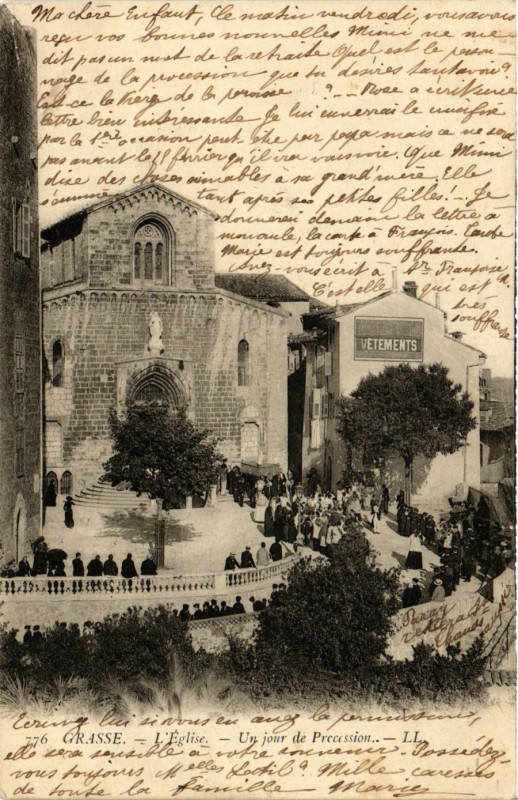 Ma chère Enfant, Ce matin vendredi, nous avons
reçu vos bonnes nouvelles Mimi ne me
dit pas un mot de la retraite Quel est le person-
nage de la procession que tu désires tant avoir?
Est-ce la vierge de la paroisse ? -- Rose a écrit une
lettre bien intéressante Je lui enverrai le
par la 1ère occasion peut-être par papa mais ce ne sera
pas avant le 18 février qu'il ira vous voir. Que Mimi
dise des choses aimables à sa grand'mère, Elle
tant après ses petites filles! -- Je
donnerai demain la lettre a
la carte à François. Tante
Marie est toujours souffrante
écrit à Françoise
C'est elle qui est
très
souffrante
VÊTEMENTS
776 GRASSE. — L'Église. — Un jour de Procession.. — LL.
Ecrivez lui si vous en avez la permission,
elle sera sensible à votre souvenir. Possédez-
vous toujours Melles ? Mille caresses
de toute la famille Marie